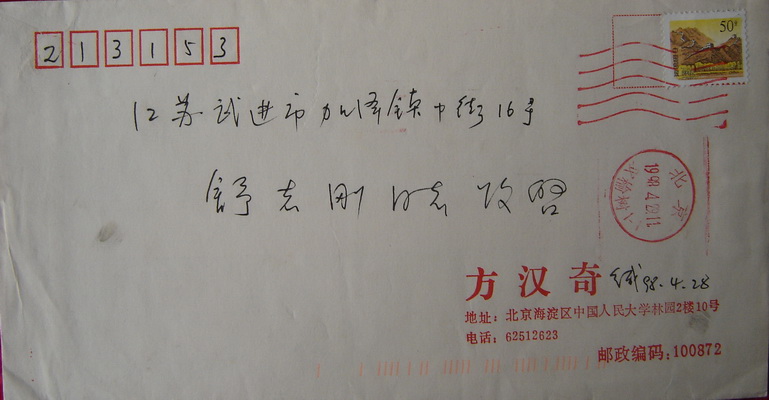 213153
50分
江苏武进市加泽镇中街16号
舒志刚同志 收启
北京
1998.4.29.11
方汉奇 缄 98.4.28
地址：北京海淀区中国人民大学林园2楼10号
电话：62512623
邮政编码：100872